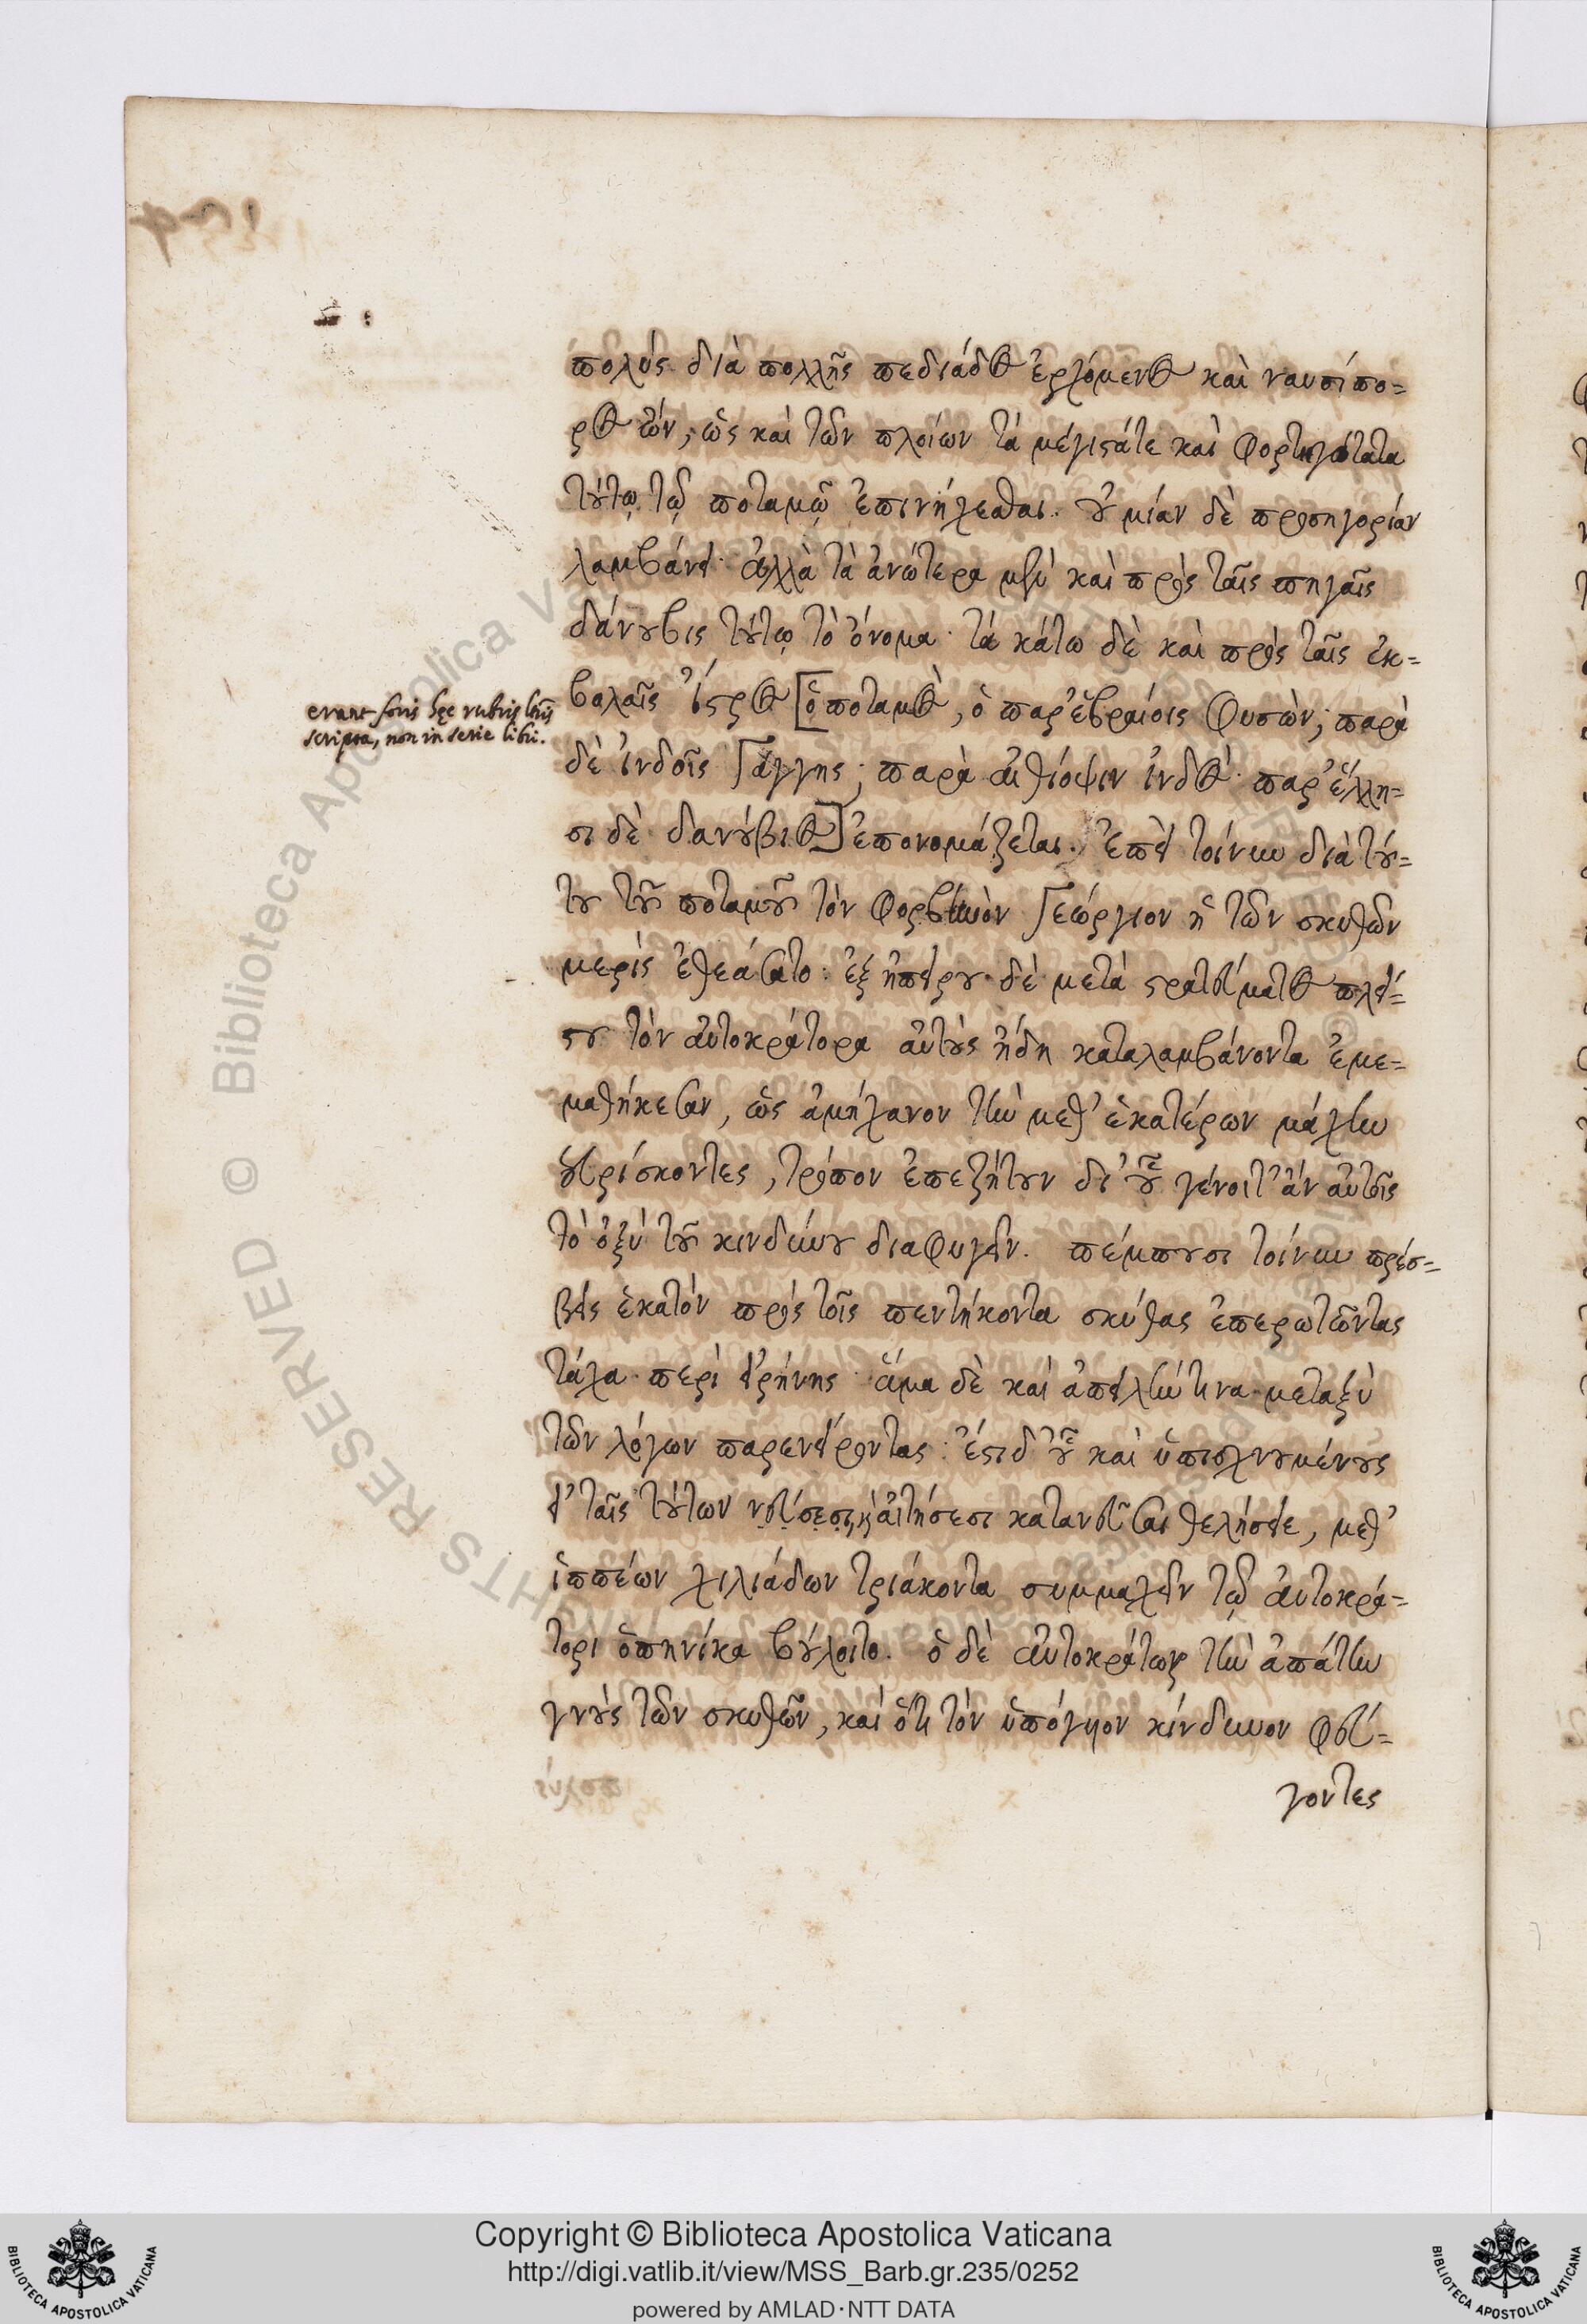 πολύς διὰ πολλῆς πεδιάδος ἐρχόμενος καὶ ναυσίπο-
ρος ὤν, ὡς καὶ τῶν πλοίων τὰ μέγιστά τε καὶ φορτηγώτατα
τούτῳ τῷ ποταμῷ ἐπινήχεσθαι. οὐ μίαν δὲ προσηγορίαν
λαμβάνει· ἀλλὰ τὰ ἀνώτερα μὲν καὶ πρὸς ταῖς πηγαῖς
δάνουβις τούτῳ τὸ ὄνομα· τὰ κάτω δὲ καὶ πρὸς ταῖς ἐκ-
βολαῖς ἴστρος [ὁ ποταμὸς, ὁ παρ' ἑβραίοις Φυσὼν, παρὰ
erant foris hęc rubris lris
scripta, non in serie libri.
δὲ ἰνδοῖς Γάγγης, παρὰ αἰθίοψιν ἰνδὸς· παρ' ἕλλη-
σι δὲ δανούβιος] ἐπονομάζεται. Ἐπεὶ τοίνυν διὰ τού-
του τοῦ ποταμοῦ τὸν φορβηνὸν Γεώργιον ἡ τῶν σκυθῶν
μερὶς ἐθεάσατο· ἐξ ἠπείρου δὲ μετὰ στρατεύματος πλεί-
στου τὸν αὐτοκράτορα αὐτοὺς ἤδη καταλαμβάνοντα ἐμε-
μαθήκεσαν, ὡς ἀμήχανον τὴν μεθ' ἑκατέρων μάχην
εὑρίσκοντες, τρόπον ἐπεζήτουν δι' οὗ γένοιτ' ἂν αὐτοῖς
τὸ ὀξὺ τοῦ κινδύνου διαφυγεῖν. πέμπουσι τοίνυν πρέσ-
βεις ἑκατὸν πρὸς τοῖς πεντήκοντα σκύθας ἐπερωτῶντας
τάχα περὶ εἰρήνης· ἅμα δὲ καὶ ἀπειλήν τινα μεταξὺ
τῶν λόγων παρενείροντας· ἔστι δ' οὗ καὶ ὑπισχνουμένους
εἰ ταῖς τούτων νεύσεσι, καὶ αἰτήσεσι κατανεῦσαι θελήσειε, μεθ'
ἱππέων χιλιάδων τριάκοντα συμμαχεῖν τῷ αὐτοκρά-
τορι ὁπηνίκα βούλοιτο. ὁ δὲ αὐτοκράτωρ τὴν ἀπάτην
γνοὺς τῶν σκυθῶν, καὶ ὅτι τὸν ὑπόγυον κίνδυνον φεύ-
γοντες
Copyright © Biblioteca Apostolica Vaticana
http://digi.vatlib.it/view/MSS_Barb.gr.235/0252
powered by AMLAD·NTT DATA